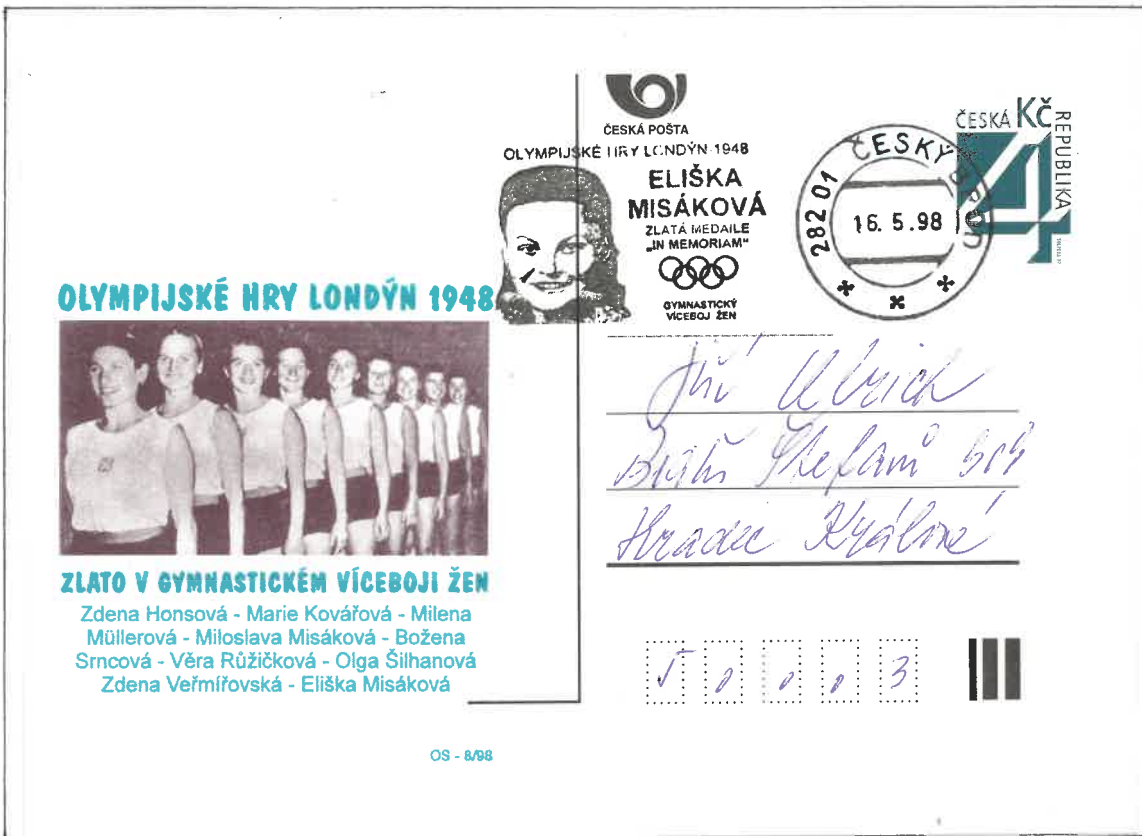 ČESKÁ POŠTA
OLYMPIJSKÉ HRY LONDÝN 1948
ELIŠKA
MISÁKOVÁ
ZLATÁ MEDAILE
„IN MEMORIAM"
GYMNASTICKÝ
VÍCEBOJ ŽEN
282 01 ČESKÝ BROD
16. 5. 98
ČESKÁ Kč REPUBLIKA
4
OLYMPIJSKÉ HRY LONDÝN 1948
ZLATO V GYMNASTICKÉM VÍCEBOJI ŽEN
Zdena Honsová - Marie Kovářová - Milena
Müllerová - Miloslava Misáková - Božena
Srncová - Věra Růžičková - Olga Šilhanová
Zdena Veřmířovská - Eliška Misáková
OS - 8/98
Jiří Ulrich
Bratří Štefanů
Hradec Králové
5 0 0 0 3